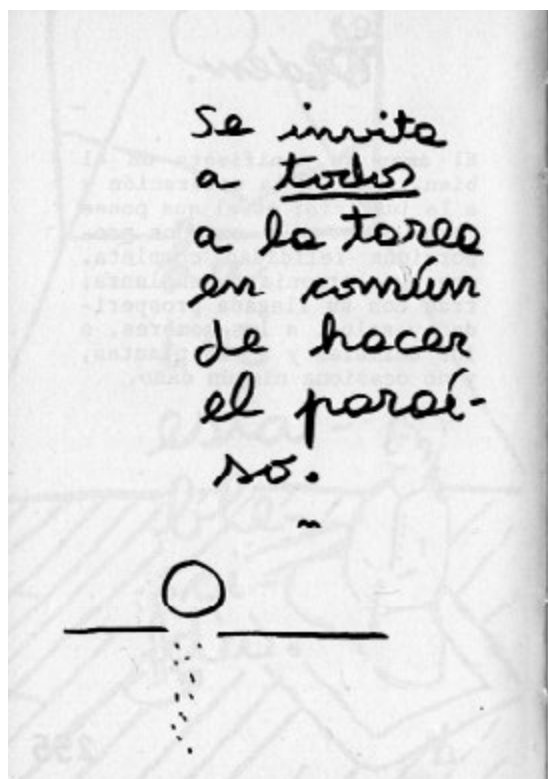 Se invita
a todos
a la tarea
en común
de hacer
el paraí-
so.